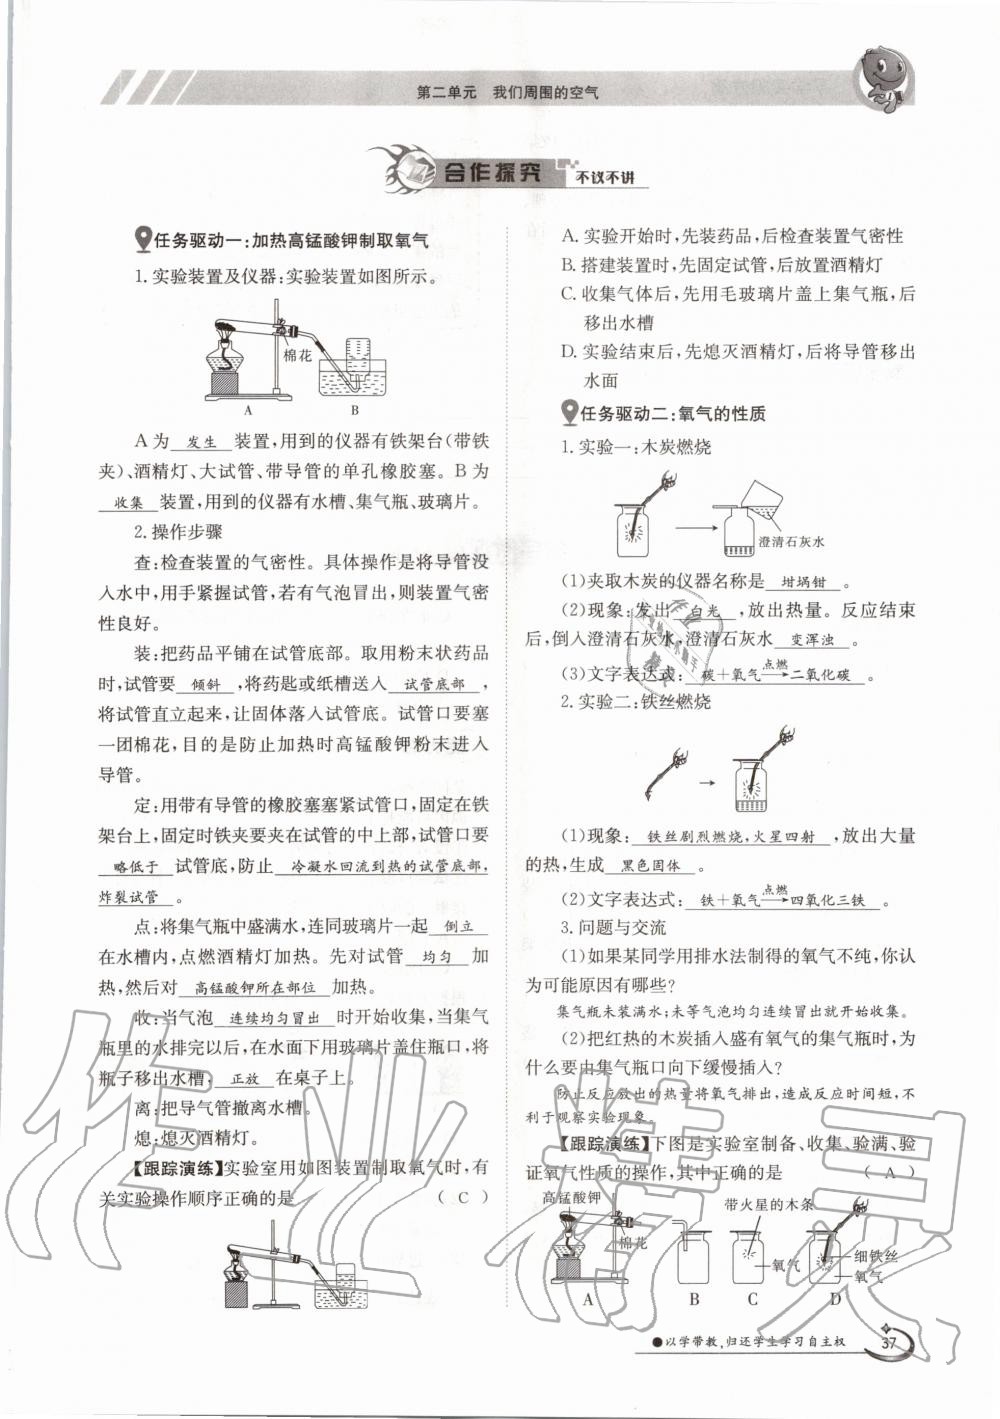 第二单元 我们周围的空气
合作探究 不议不讲
任务驱动一:加热高锰酸钾制取氧气
1. 实验装置及仪器:实验装置如图所示。
棉花
A B
A 为 发生 装置,用到的仪器有铁架台(带铁
夹)、酒精灯、大试管、带导管的单孔橡胶塞。B 为
收集 装置,用到的仪器有水槽、集气瓶、玻璃片。
2. 操作步骤
查:检查装置的气密性。具体操作是将导管没
入水中,用手紧握试管,若有气泡冒出,则装置气密
性良好。
装:把药品平铺在试管底部。取用粉末状药品
时,试管要 倾斜 ,将药匙或纸槽送入 试管底部 ,
将试管直立起来,让固体落入试管底。试管口要塞
一团棉花,目的是防止加热时高锰酸钾粉末进入
导管。
定:用带有导管的橡胶塞塞紧试管口,固定在铁
架台上,固定时铁夹要夹在试管的中上部,试管口要
略低于 试管底,防止 冷凝水回流到热的试管底部,
炸裂试管 。
点:将集气瓶中盛满水,连同玻璃片一起 倒立
在水槽内,点燃酒精灯加热。先对试管 均匀 加
热,然后对 高锰酸钾所在部位 加热。
收:当气泡 连续均匀冒出 时开始收集,当集气
瓶里的水排完以后,在水面下用玻璃片盖住瓶口,将
瓶子移出水槽, 正放 在桌子上。
离:把导气管撤离水槽。
熄:熄灭酒精灯。
【跟踪演练】实验室用如图装置制取氧气时,有
关实验操作顺序正确的是 ( C )
A. 实验开始时,先装药品,后检查装置气密性
B. 搭建装置时,先固定试管,后放置酒精灯
C. 收集气体后,先用毛玻璃片盖上集气瓶,后
移出水槽
D. 实验结束后,先熄灭酒精灯,后将导管移出
水面
任务驱动二:氧气的性质
1. 实验一:木炭燃烧
澄清石灰水
(1)夹取木炭的仪器名称是 坩埚钳 。
(2)现象:发出 白光 ,放出热量。反应结束
后,倒入澄清石灰水,澄清石灰水 变浑浊 。
(3)文字表达式: 碳+氧气 点燃→ 二氧化碳 。
2. 实验二:铁丝燃烧
(1)现象: 铁丝剧烈燃烧,火星四射 ,放出大量
的热,生成 黑色固体 。
(2)文字表达式: 铁+氧气 点燃→ 四氧化三铁 。
3. 问题与交流
(1)如果某同学用排水法制得的氧气不纯,你认
为可能原因有哪些?
集气瓶未装满水;未等气泡均匀连续冒出就开始收集。
(2)把红热的木炭插入盛有氧气的集气瓶时,为
什么要由集气瓶口向下缓慢插入?
防止反应放出的热量将氧气排出,造成反应时间短,不
利于观察实验现象。
【跟踪演练】下图是实验室制备、收集、验满、验
证氧气性质的操作,其中正确的是 ( A )
高锰酸钾 带火星的木条
棉花 氧气 细铁丝
氧气
A B C D
●以学带教,归还学生学习自主权 37
作业精灵